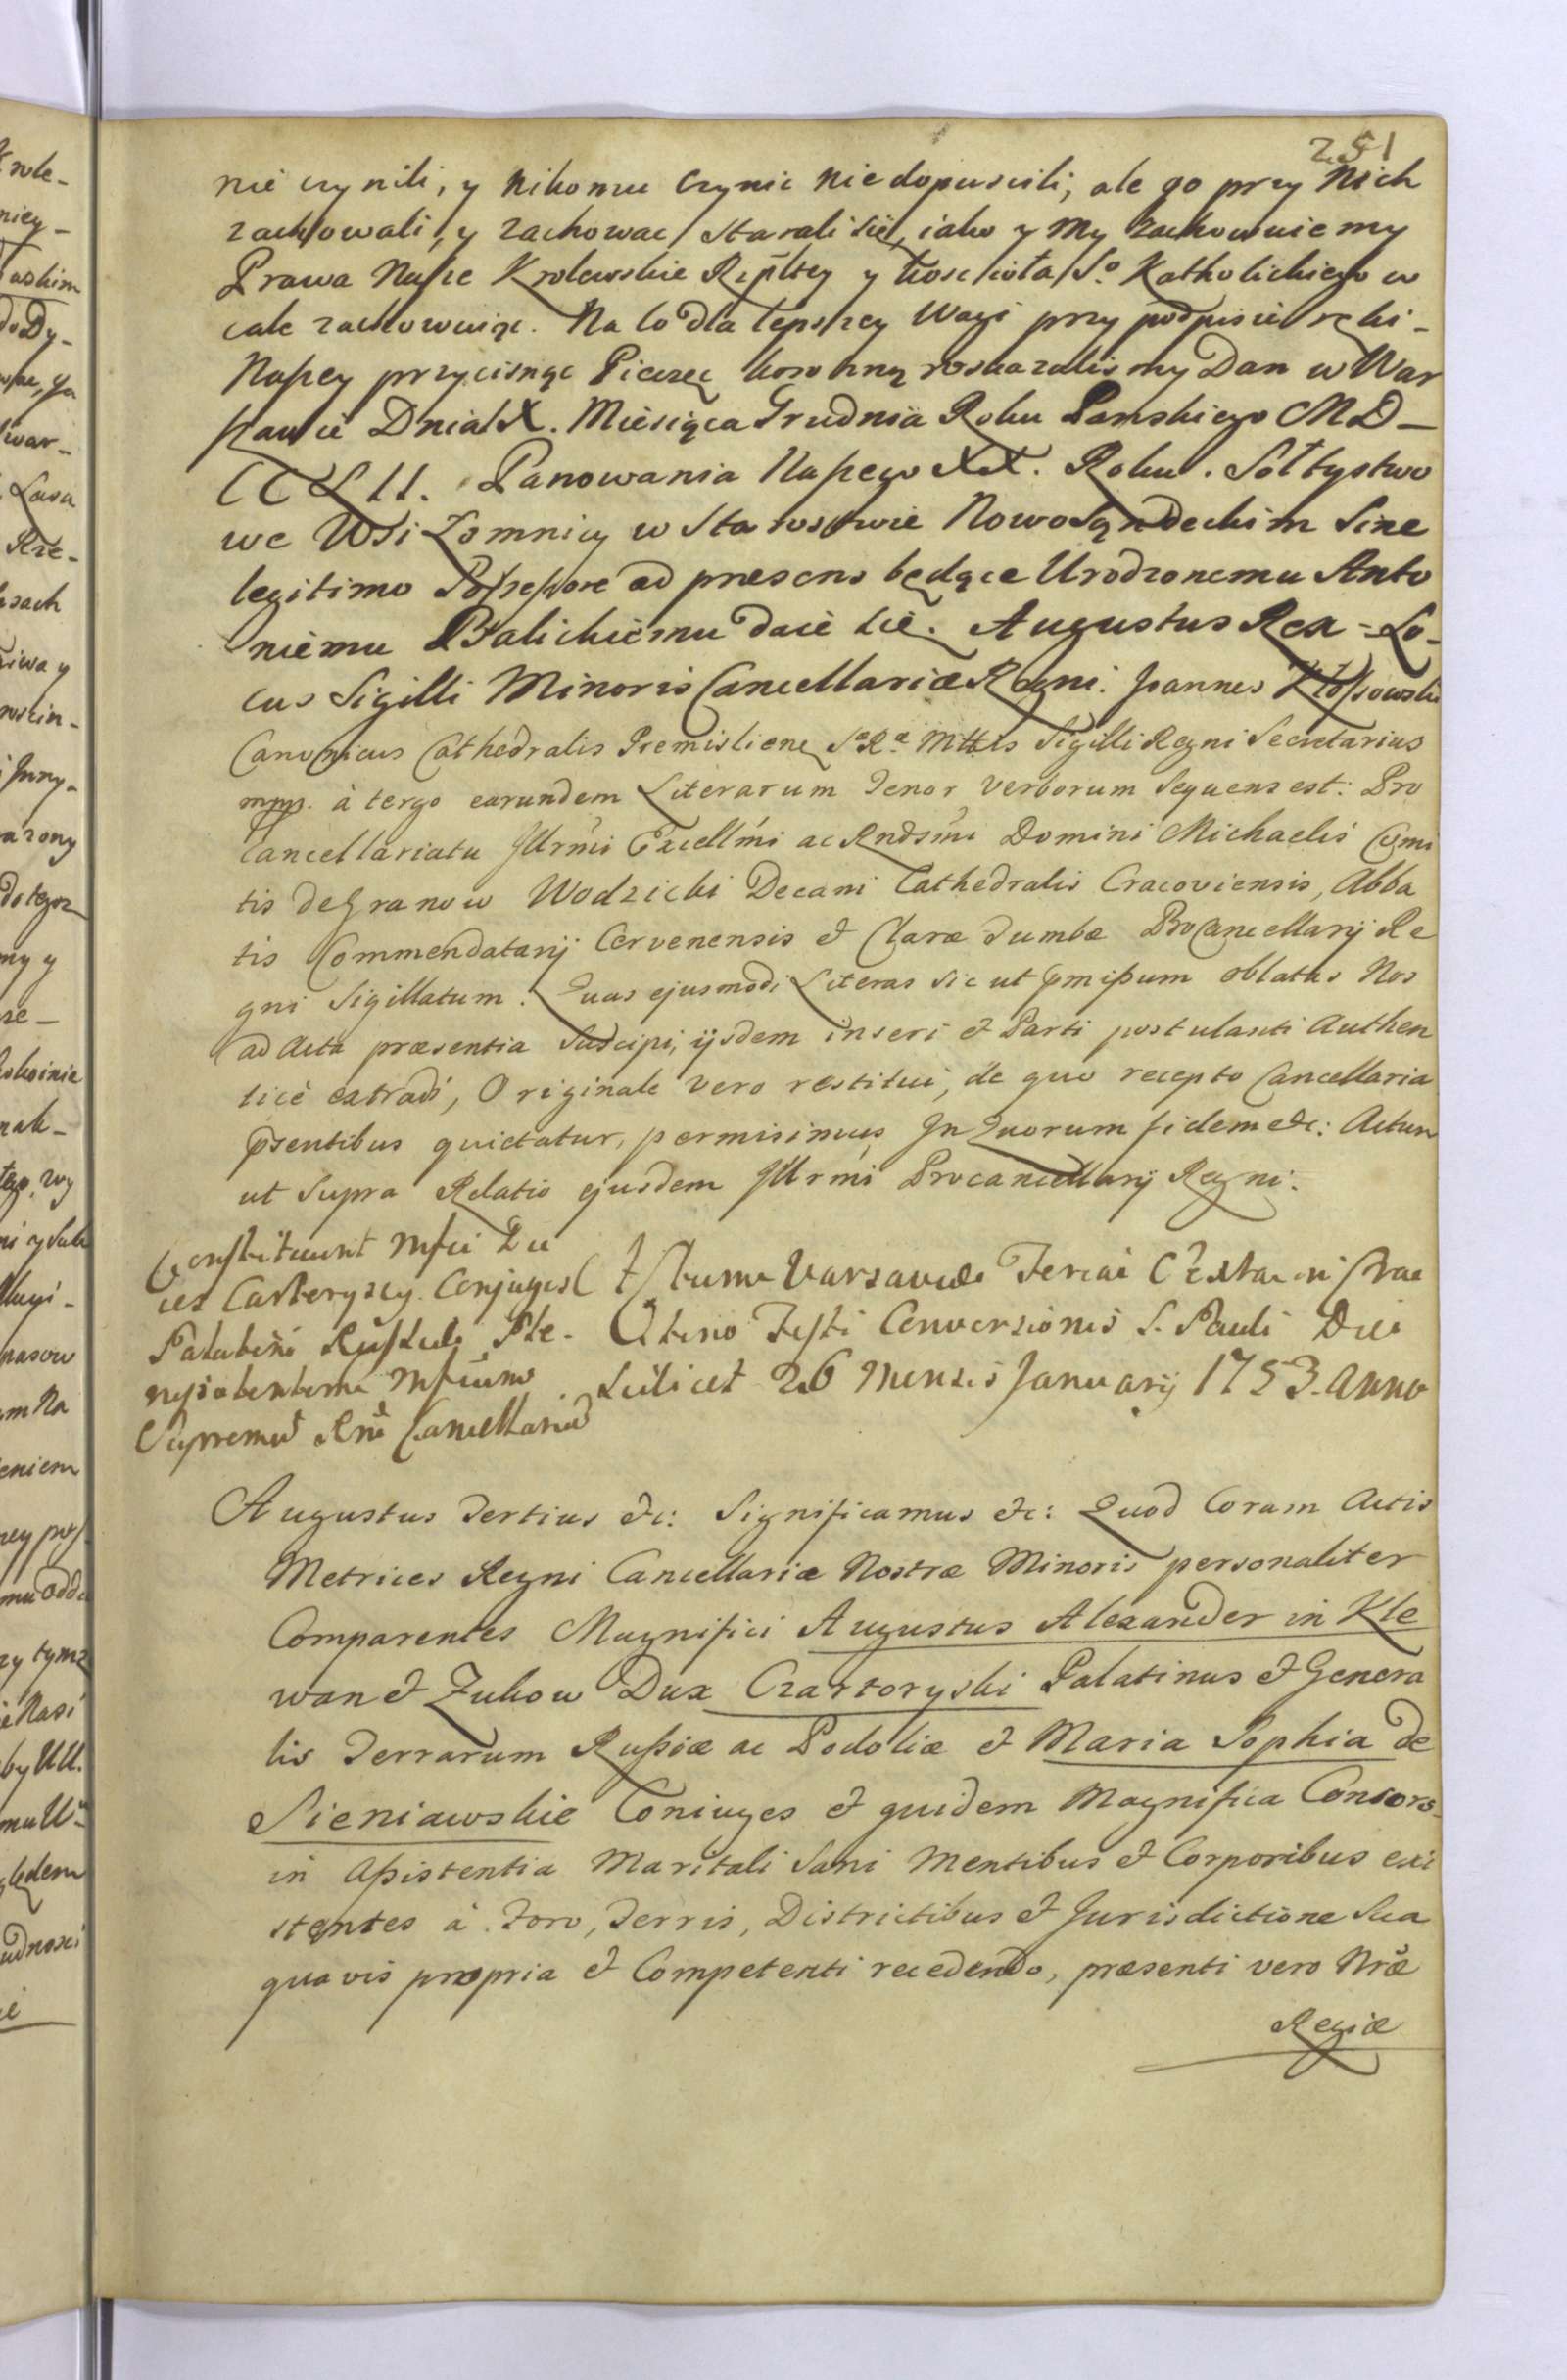 251
nie czynili, y Nikomu Czynic Niedopuscili, ale go przy Nich
zachowali, y zachowac starali się, iako y My zachowuiemy
Prawa Nasze Krolewskie Rzpltey y kosciola So Katholickiego w
cale zachowuiąc. Na to dla lepszey Wagi przy podpisie ręki-
Naszey przycisnąc Pieczęc koronną roskazalismy Dan w War
szawie Dnia X. Miesiąca Grudnia Roku Panskiego MD-
CCLII. Panowania Naszego XX. Roku. Sołtystwo
we Wsi Łomnicy w Starostwie Nowosąndeckim Sine
legitimo Possessore ad presens będące Urodzonemu Anto
niemu Bialickiemu daie się. Augustus Rex = Lo-
cus Sigilli Minoris Cancellariæ Regni. Joannes Kłossowski
Canonicus Cathedralis Premislienę Sæ Ræ Mttis Sigilli Regni Secretarius
mpp. à tergo earundem Literarum Tenor Verborum Sequens est: Pro
Cancellariatu Jllrmi Excellmi ac Rndsmi Domini Michaelis Comi
tis de Granow Wodzicki Decani Cathedralis Cracoviensis, Abba
tis Commendatarij Cervenensis & Claræ Tumbæ ProCancellarij Re
gni Sigillatum. Quas ejusmodi Literas sic ut pmissum oblatas Nos
ad Acta præsentia Suscipi, ijsdem inseri & Parti postulanti Authen
ticè extradi, Originale vero restitui, de quo recepto Cancellaria
psentibus quietatur, permisimus Jn Quorum fidem &c: Actum
ut Supra Relatio ejusdem Jllrmi Procancellarij Regni.
Constituunt Mfici Du
ces Conjuges
Palatini Ple-
nipotentem
Supremus Rni Cancellarius
Actum Varsaviæ Feria Sexta in Cras
tino Festi Conversionis S. Pauli Die
Scilicet 26 Mensis Januarij 1753. Anno
Augustus Tertius &c: Significamus &c: Quod Coram Actis
Metrices Regni Cancellariæ Nostræ Minoris personaliter
Comparentes Magnifici Augustus Alexander in Kle
wan & Zukow Dux Czartoryski Palatinus & Genera
lis Terrarum Russiæ ac Podoliæ & Maria Sophia de
Sieniawskie Coniuges & quidem Magnifica Consors
in Assistentia Maritali Sani Mentibus & Corporibus exi
stentes à Foro, Terris, Districtibus & Jurisdictione Sua
quavis propria & Competenti recedendo, præsenti vero Nræ
Regiæ